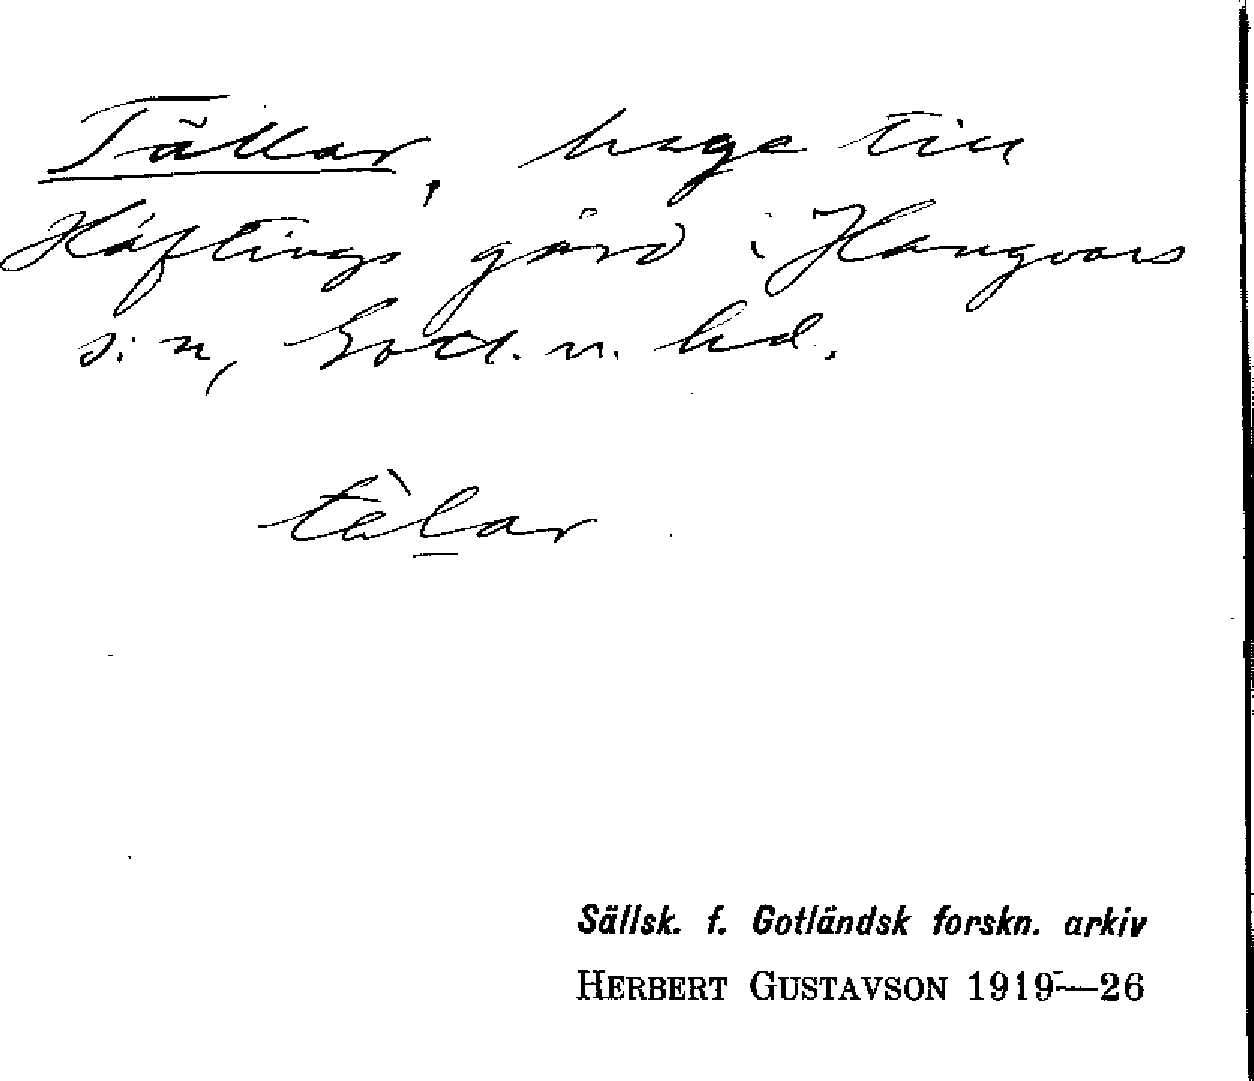 Tällar, hage till
Häftings gård i Hangvars
s:n, Gotl. n. hd.
tèlar
Sällsk. f. Gotländsk forskn. arkiv
HERBERT GUSTAVSON 1919—26